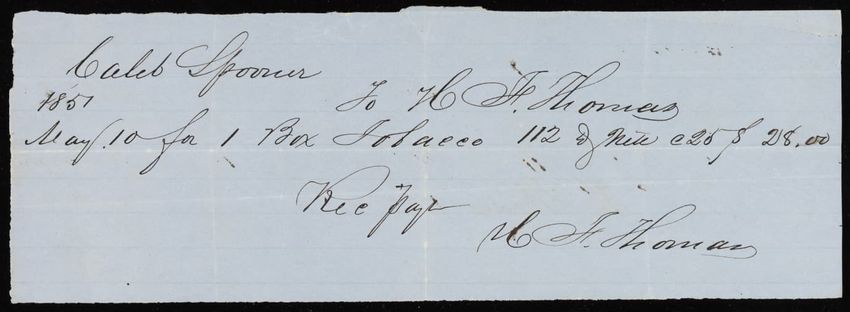 Caleb Spooner
1851 To H. F. Thomas
May. 10 for 1 Box Tobacco 112 lb Nett c25 $ 28.00
Rec pay
H. F. Thomas